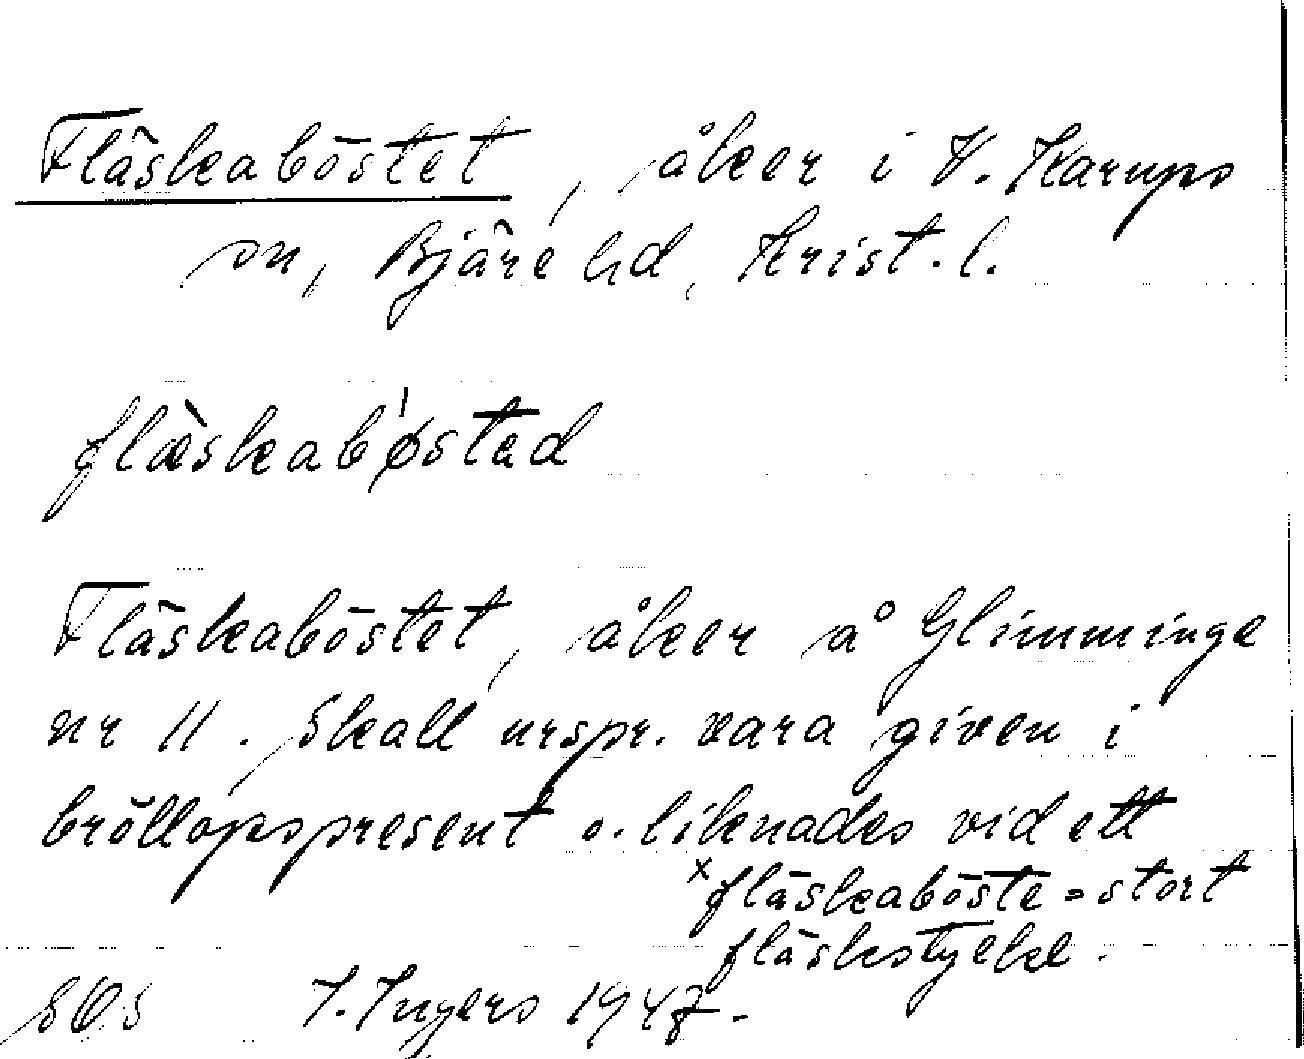 Fläskaböstet, åker i V. Karups
sn, Bjäre hd, Krist. l.
flæ̀skabø̍stəd
Fläskaböstet, åker å Glimminge
nr 11. Skall urspr. vara given i
bröllopspresent o. liknades vid ett
×fläskaböste = stort
fläskstycke.
I. Ingers 1947.